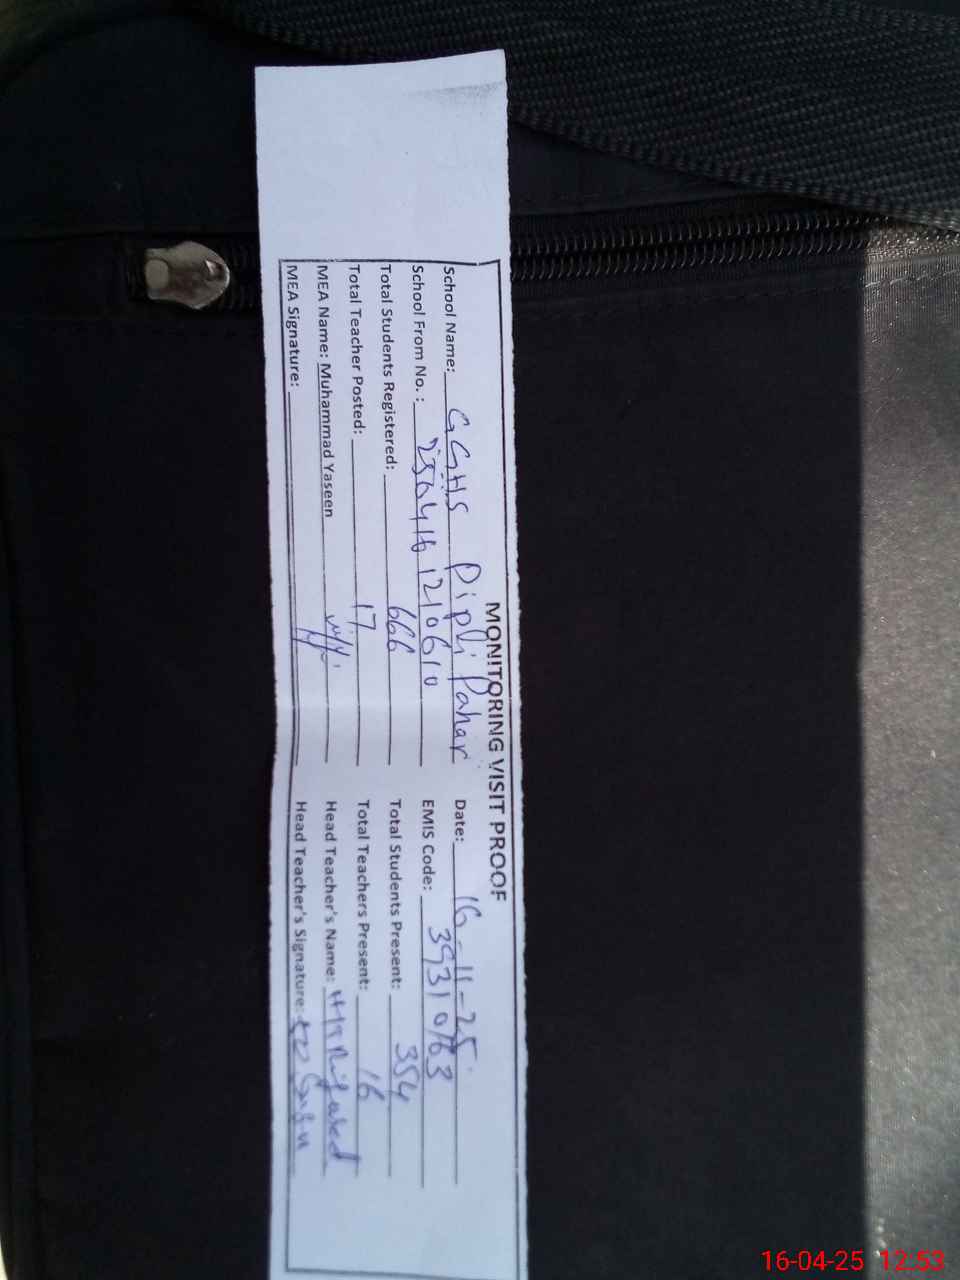 MONITORING VISIT PROOF
School Name: GGHS Pipli Pahar Date: 16-11-25
School From No. : 2504161210610 EMIS Code: 39310763
Total Students Registered: 666 Total Students Present: 354
Total Teacher Posted: 17 Total Teachers Present: 16
MEA Name: Muhammad Yaseen Head Teacher's Name:
MEA Signature: Head Teacher's Signature:
16-04-25 12:53